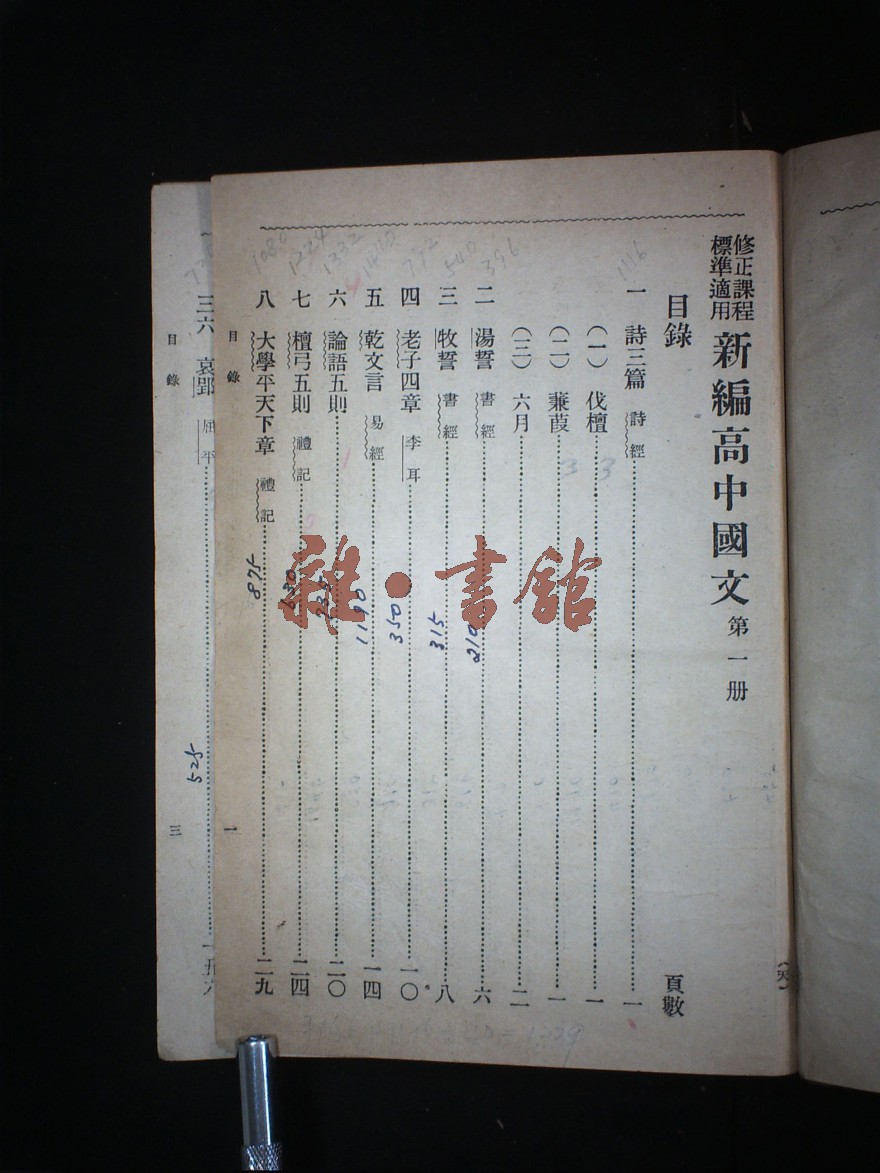 修正課程
標準適用
新編高中國文 第一册
目錄 頁數
一 詩三篇 詩經 一
(一) 伐檀 一
(二) 蒹葭 一
(三) 六月 二
二 湯誓 書經 六
三 牧誓 書經 八
四 老子四章 李耳 一〇
五 乾文言 易經 一四
六 論語五則 二〇
七 檀弓五則 禮記 二四
八 大學平天下章 禮記 二九
目錄 一
三六 哀郢 屈平
目錄 三
1116
396
540
1332
210
315
350
1190
875
525
雜·書館